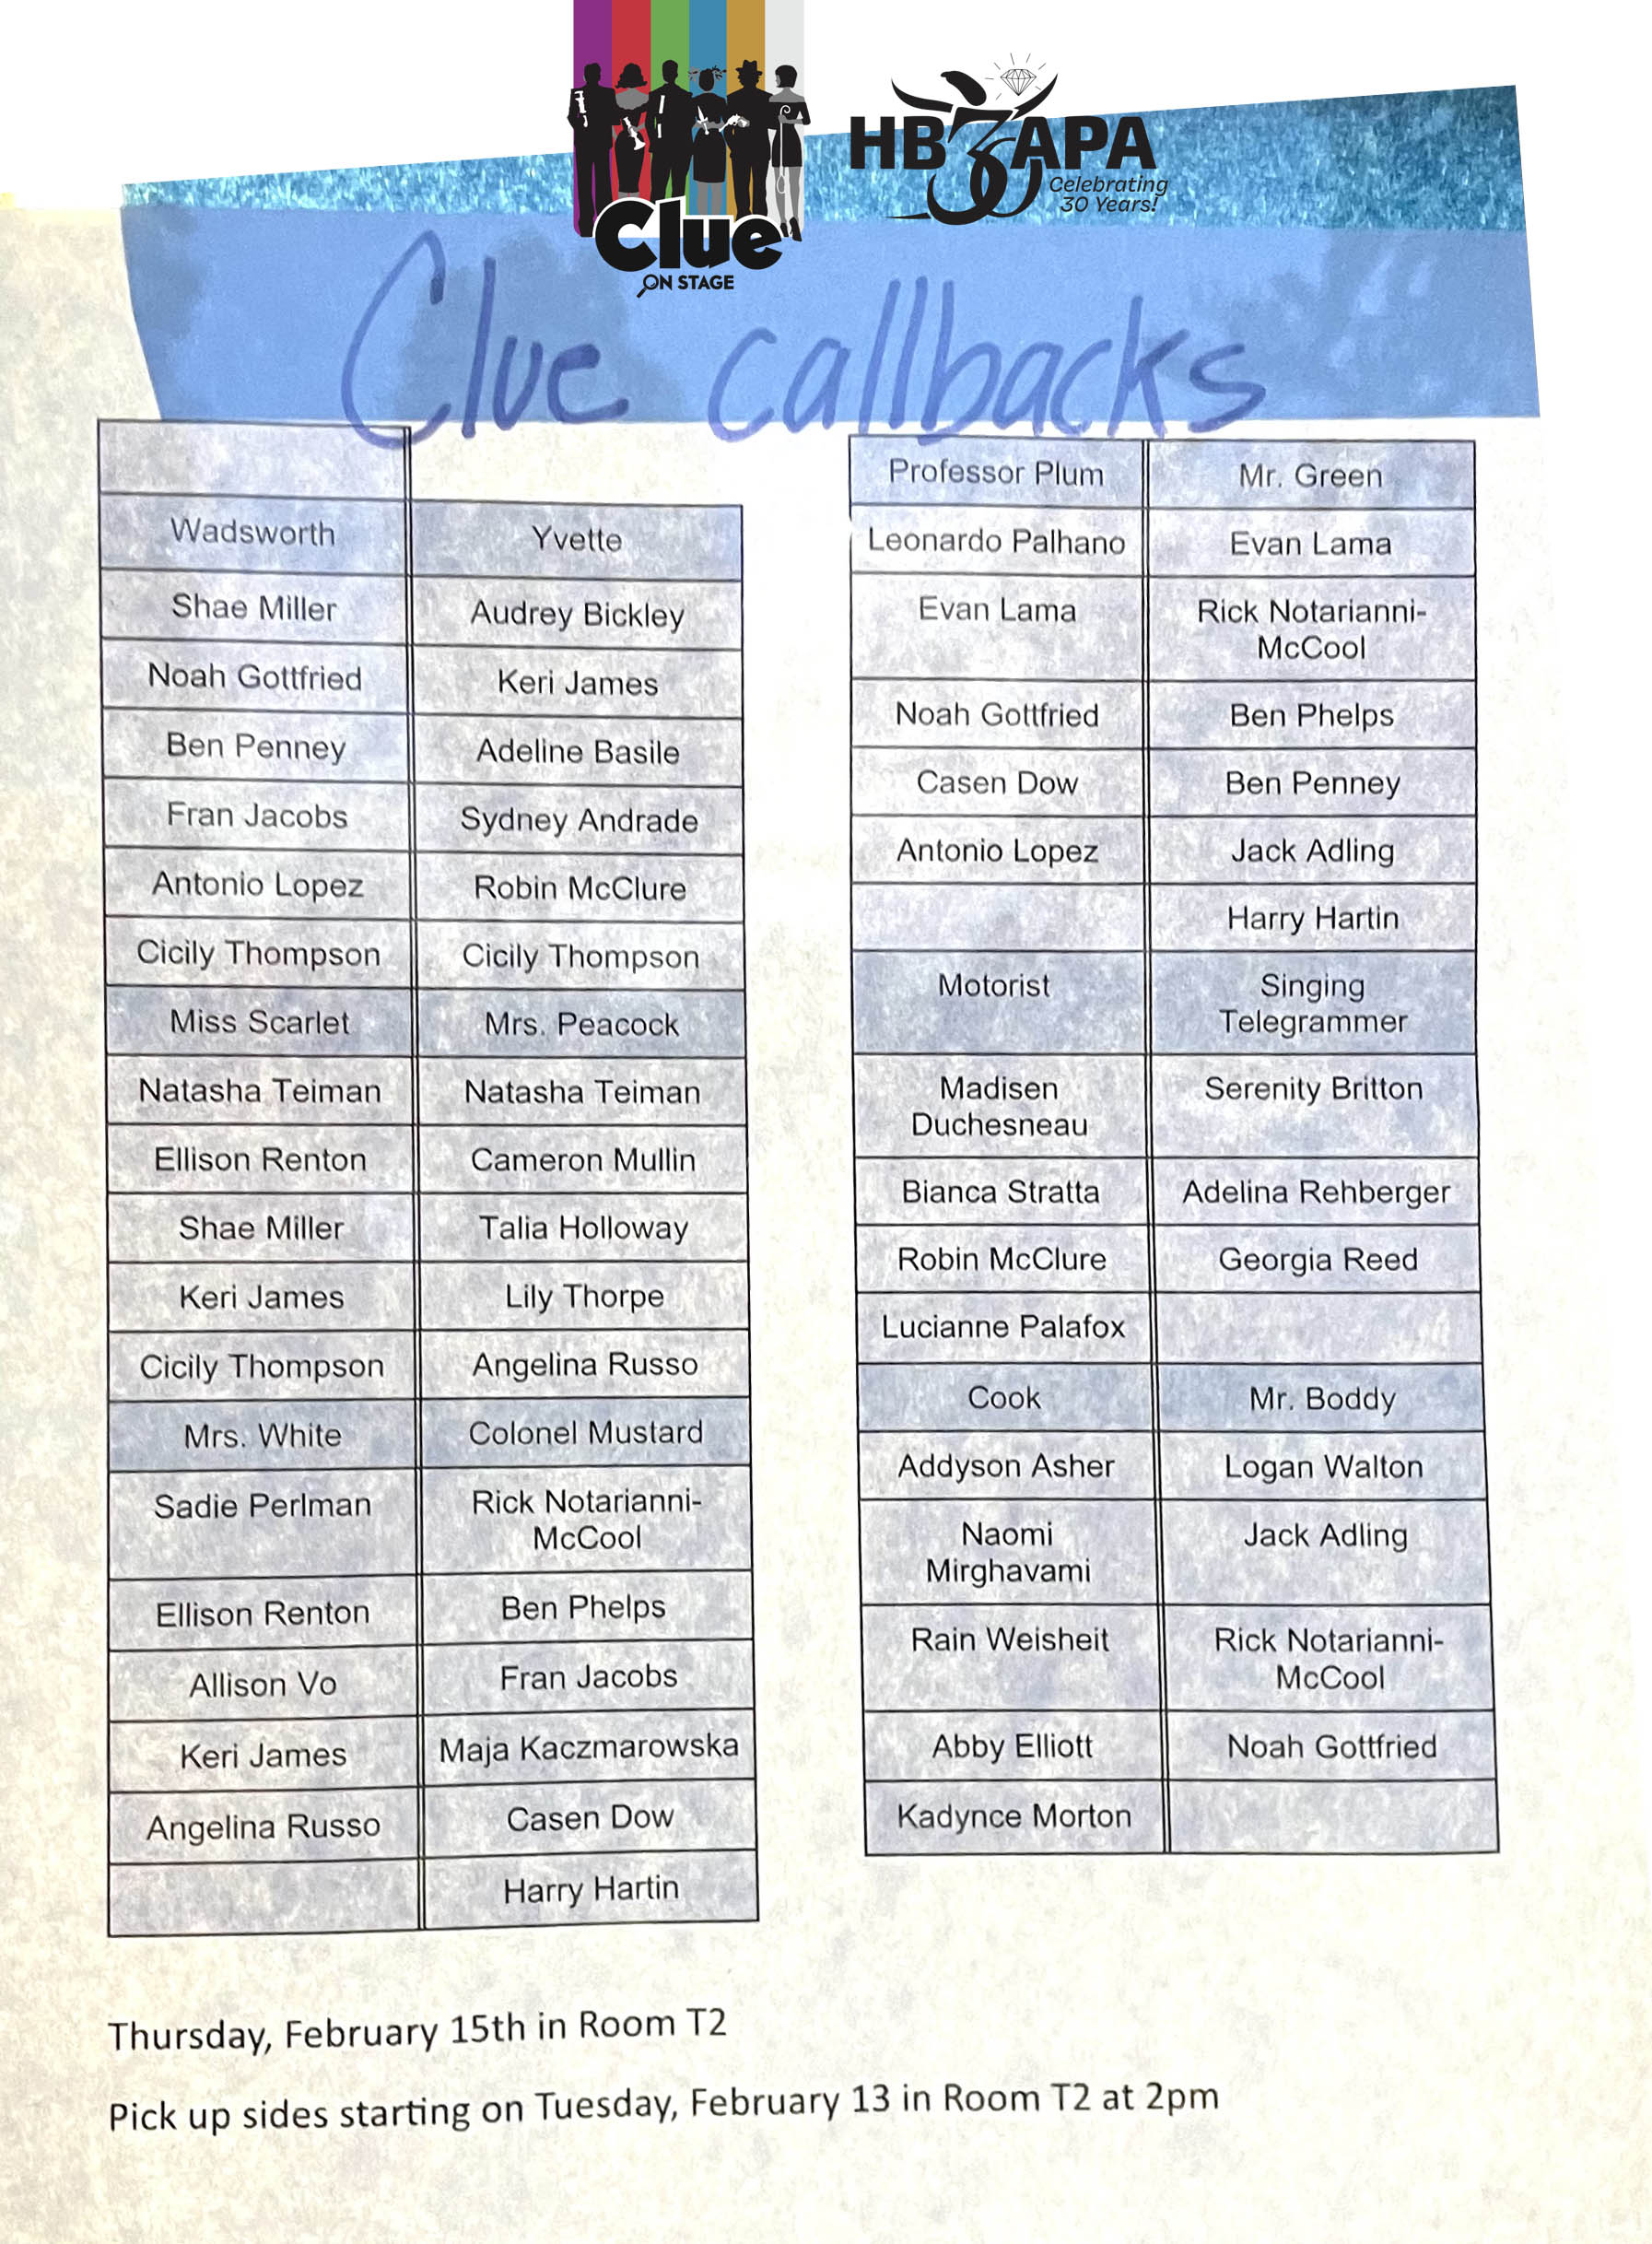 Clue
ON STAGE
HB30APA
Celebrating
30 Years!
Clue callbacks
Wadsworth Yvette
Shae Miller Audrey Bickley
Noah Gottfried Keri James
Ben Penney Adeline Basile
Fran Jacobs Sydney Andrade
Antonio Lopez Robin McClure
Cicily Thompson Cicily Thompson
Miss Scarlet Mrs. Peacock
Natasha Teiman Natasha Teiman
Ellison Renton Cameron Mullin
Shae Miller Talia Holloway
Keri James Lily Thorpe
Cicily Thompson Angelina Russo
Mrs. White Colonel Mustard
Sadie Perlman Rick Notarianni-
McCool
Ellison Renton Ben Phelps
Allison Vo Fran Jacobs
Keri James Maja Kaczmarowska
Angelina Russo Casen Dow
Harry Hartin
Professor Plum Mr. Green
Leonardo Palhano Evan Lama
Evan Lama Rick Notarianni-
McCool
Noah Gottfried Ben Phelps
Casen Dow Ben Penney
Antonio Lopez Jack Adling
Harry Hartin
Motorist Singing
Telegrammer
Madisen Serenity Britton
Duchesneau
Bianca Stratta Adelina Rehberger
Robin McClure Georgia Reed
Lucianne Palafox
Cook Mr. Boddy
Addyson Asher Logan Walton
Naomi Jack Adling
Mirghavami
Rain Weisheit Rick Notarianni-
McCool
Abby Elliott Noah Gottfried
Kadynce Morton
Thursday, February 15th in Room T2
Pick up sides starting on Tuesday, February 13 in Room T2 at 2pm